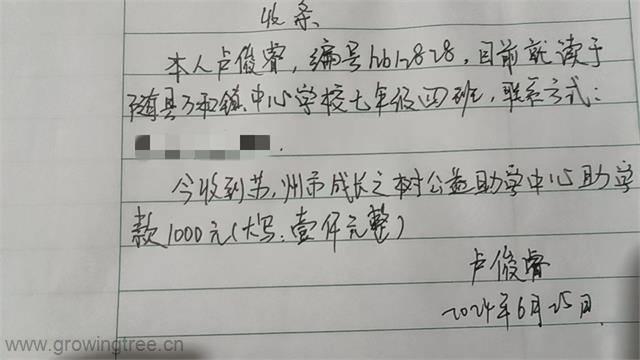 收条
本人卢俊睿，编号hb12828，目前就读于
随县万和镇中心学校七年级四班，联系方式：
.
今收到苏州市成长之树公益助学中心助学
款1000元（大写：壹仟元整）
卢俊睿
2024年6月25日.
www.growingtree.cn